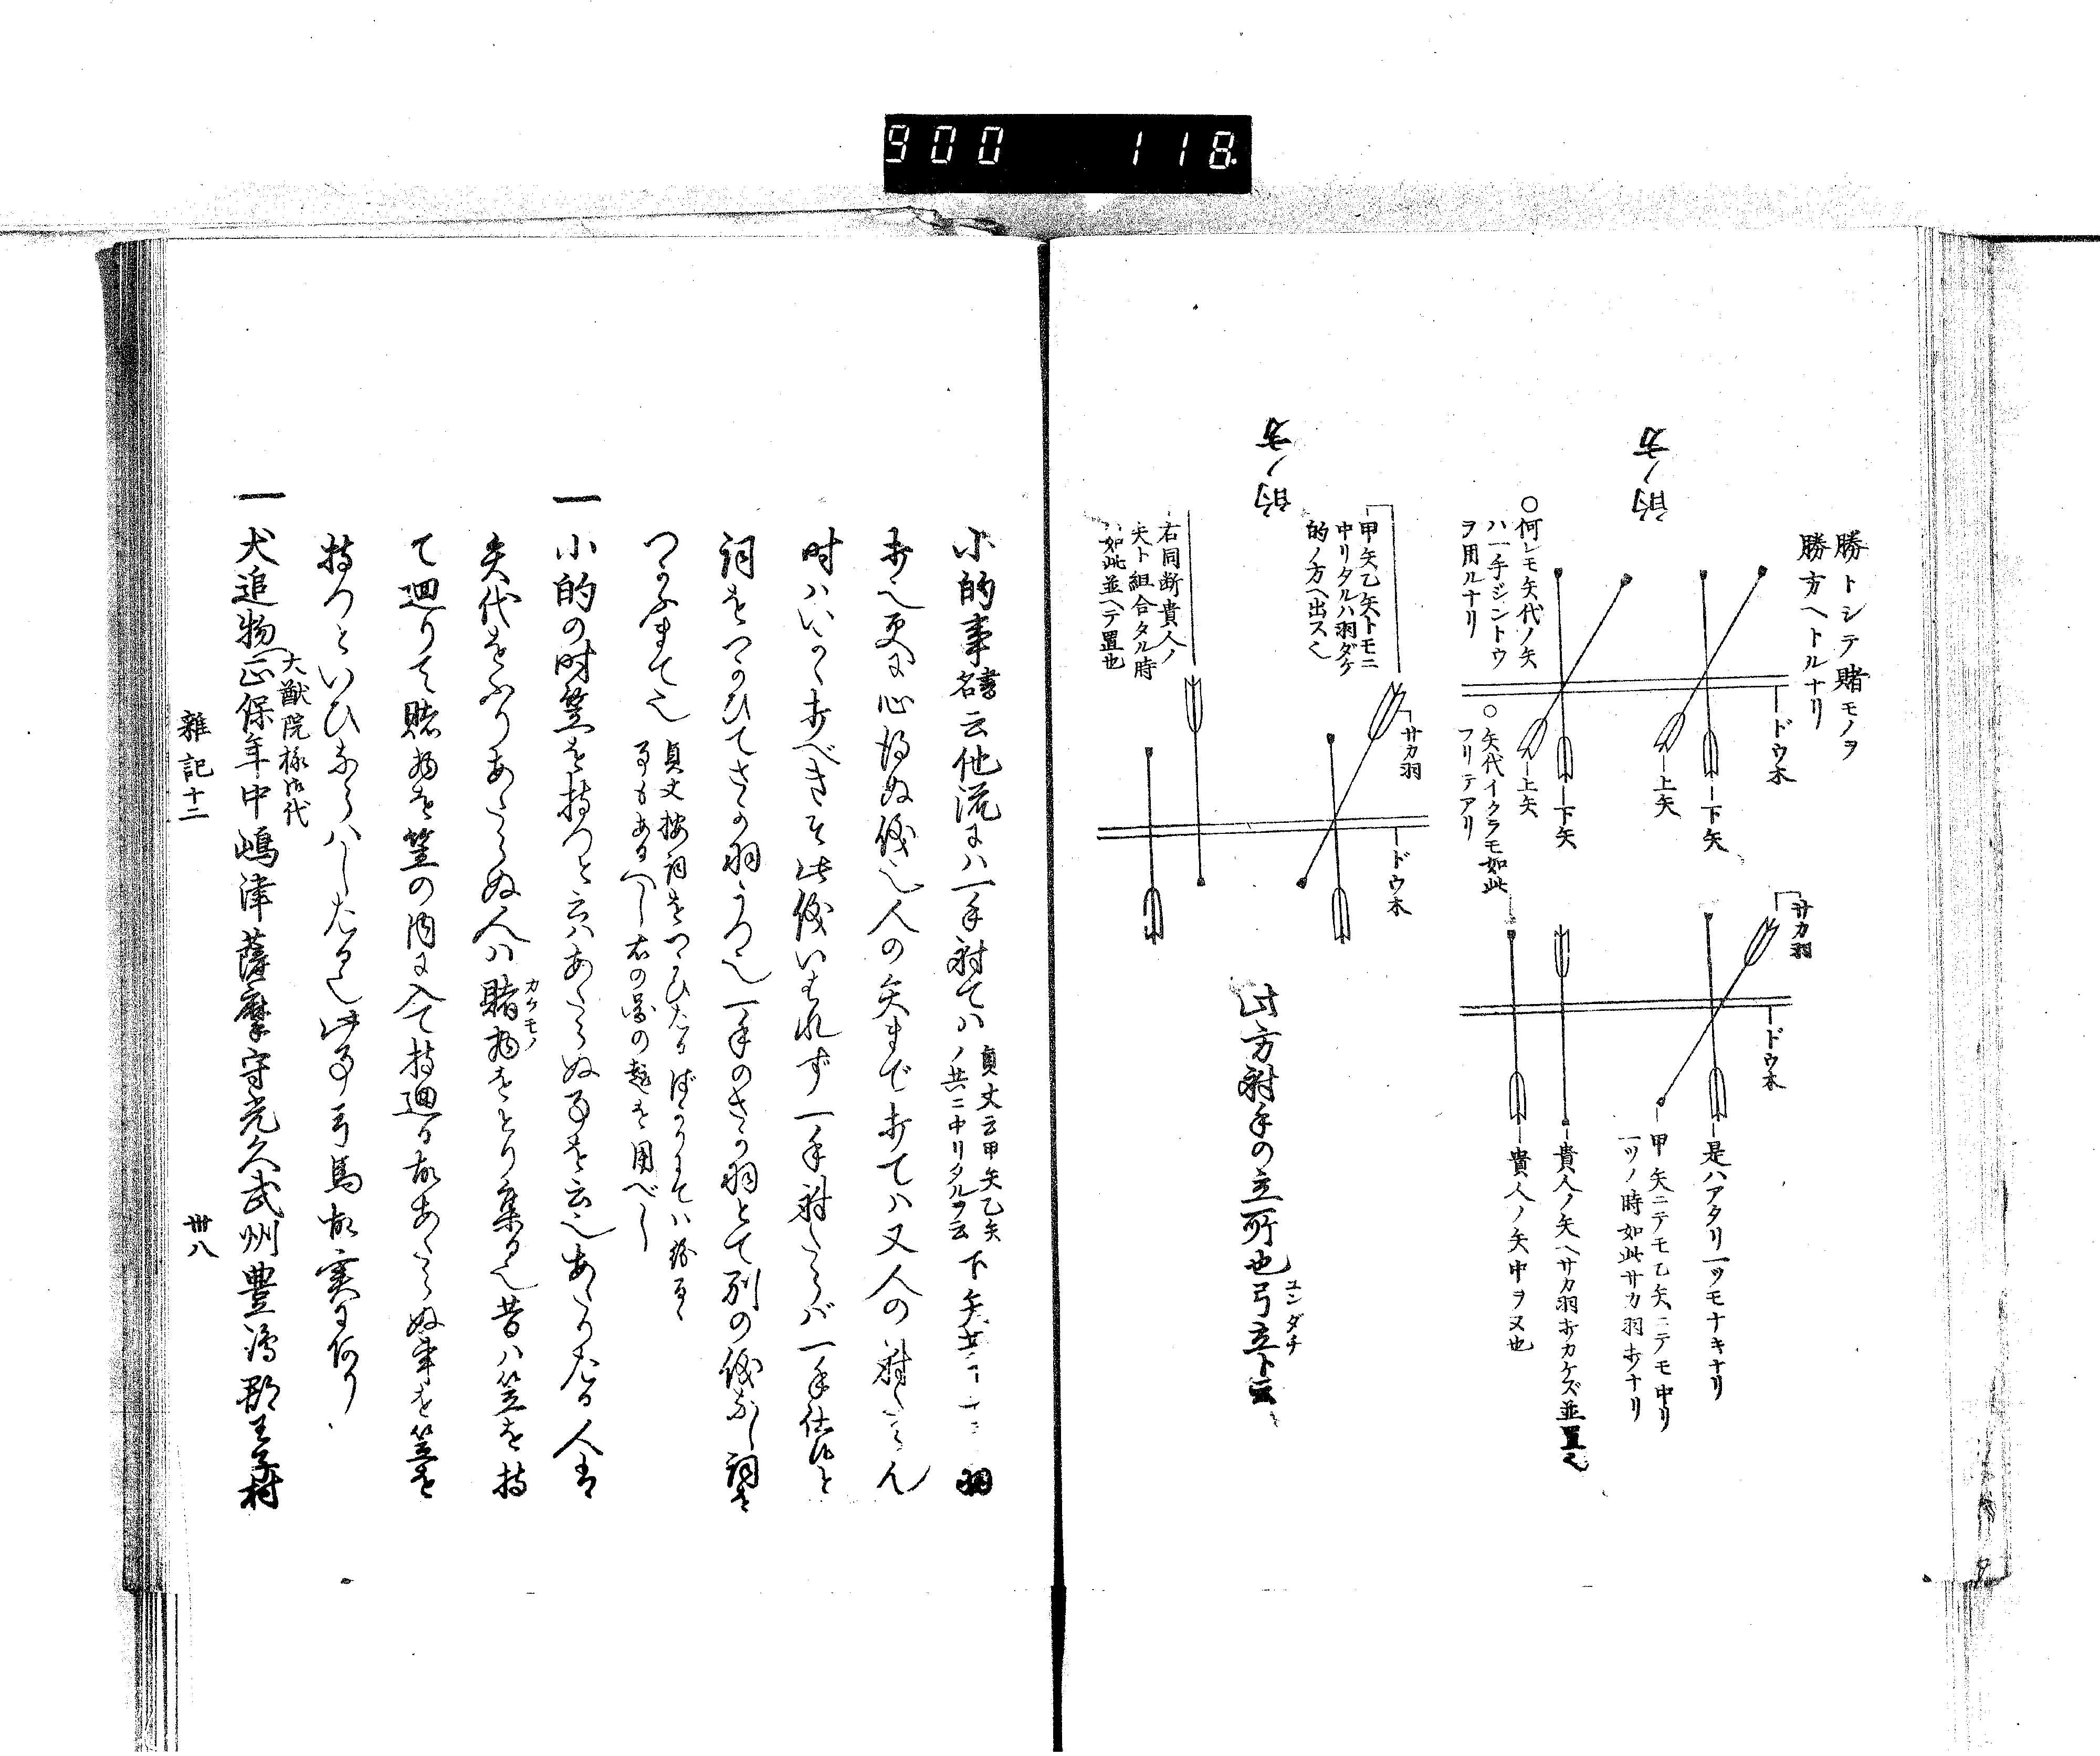 900 118
勝トシテ賭モノヲ
勝方ヘトルナリ
的ノ方
ドウ木
下矢
上矢
下矢
上矢
○何レモ矢代ノ矢
ハ一手ジントウ
ヲ用ルナリ
○矢代イクラモ如此
フリテアリ
サカ羽
ドウ木
是ハアタリ一ツモナキナリ
甲矢ニテモ乙矢ニテモ中リ
一ツノ時如此サカ羽打ナリ
貴人ノ矢ヘサカ羽打カケズ並置也
貴人ノ矢中ヲヌ也
的ノ方
甲矢乙矢トモニ
中リタルハ羽ダケ
的ノ方ヘ出ス也
サカ羽
ドウ木
右同断貴人ノ
矢ト組合タル時
如此並ヘテ置也
此方射手の立所也弓立ト云
ユンダチ
小的事書名云他流ニハ一手射てハ
貞丈云甲矢乙矢
ノ共ニ中リタルヲ云
下矢
羽
打也更に心得ぬ儀也人の矢まで打てハ又人の射
時ハいかゝ打べきそ此儀いはれず一手射
バ一手仕候と
詞をつかひてさか羽うつ也一手のさか羽とて別の儀なし詞を
つかふまて也
貞丈按詞をつかひたるばかりにてハ
事もあるへし右の図の趣を用べし
一 小的の时笠を持つと云ハあたらぬ事を云也あたりたる人は
矢代をふりあたらぬ人ハ賭物をとり集る也昔ハ笠を持
カケモノ
て廻りて賭物を笠の内に入て持廻る故あたらぬ事を笠を
持つといひならハしたる也此事弓馬故実に有り
一 犬追物正保年中嶋津薩摩守光久武州豊嶋郡王子村
大猷院様御代
雑記十二
卅八